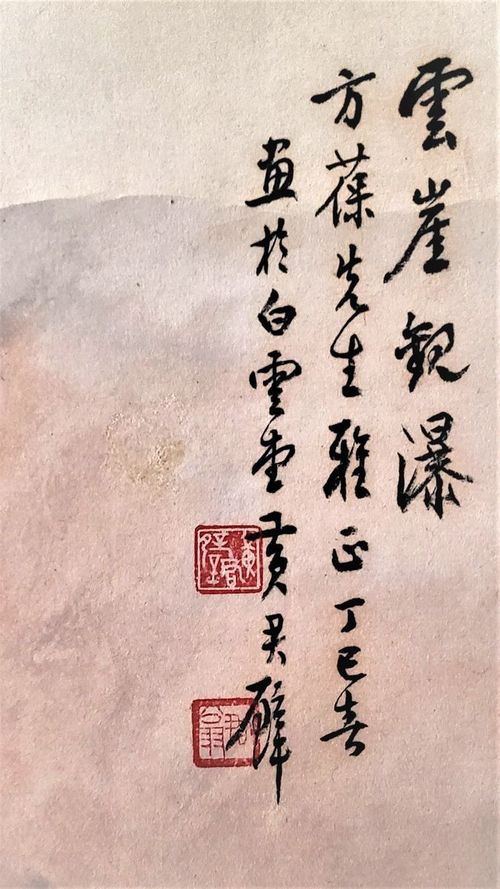 雲崖觀瀑
方葆先生雅正丁巳春
畫於白雲堂黃君璧